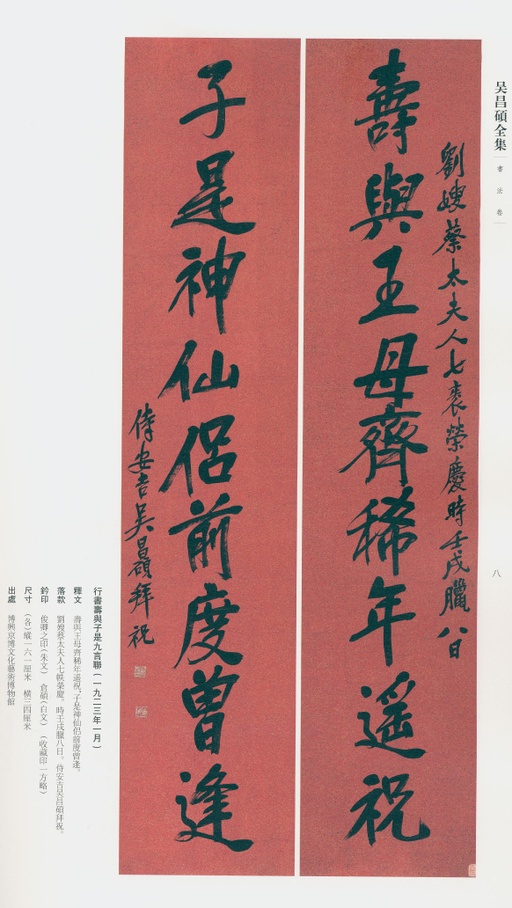 吴昌碩全集
書法卷
劉嫂蔡太夫人七袠榮慶時壬戌臘八日
壽與王母齊稀年遥祝
子是神仙侣前度曾逢
侍安吉吴昌碩拜祝
八
行書壽與子是九言聯(一九二三年一月)
釋文 壽與王母齊稀年遥祝,子是神仙侣前度曾逢。
落款 劉嫂蔡太夫人七帙榮慶。時壬戌臘八日。侍安吉吴昌碩拜祝。
鈐印 俊卿之印(朱文) 倉碩(白文) (收藏印一方略)
尺寸 (各)縱一六一厘米 橫三四厘米
出處 博興京博文化藝術博物館